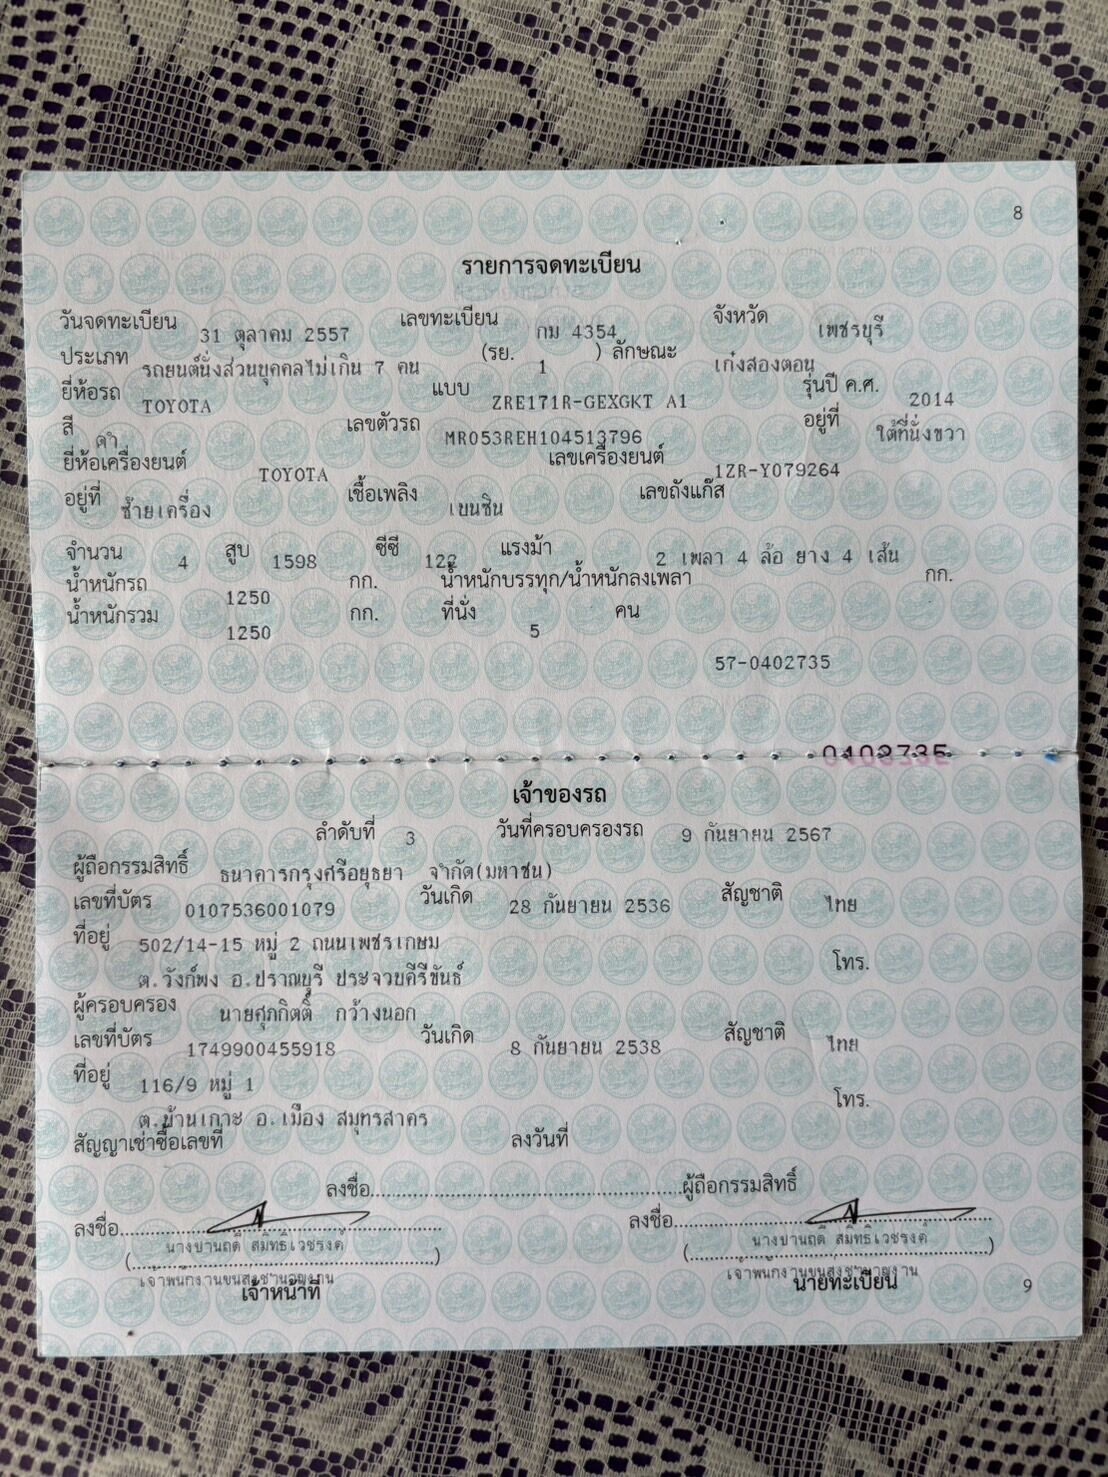 8
รายการจดทะเบียน
วันจดทะเบียน 31 ตุลาคม 2557 เลขทะเบียน กม 4354 จังหวัด เพชรบุรี
ประเภท รถยนต์นั่งส่วนบุคคลไม่เกิน 7 คน (รย. 1 ) ลักษณะ เก๋งสองตอน
ยี่ห้อรถ TOYOTA แบบ ZRE171R-GEXGKT A1 รุ่นปี ค.ศ. 2014
สี ดำ เลขตัวรถ MR053REH104513796 อยู่ที่ ใต้ที่นั่งขวา
ยี่ห้อเครื่องยนต์ TOYOTA เลขเครื่องยนต์ 1ZR-Y079264
อยู่ที่ ซ้ายเครื่อง เชื้อเพลิง เบนซิน เลขถังแก๊ส
จำนวน 4 สูบ 1598 ซีซี 122 แรงม้า 2 เพลา 4 ล้อ ยาง 4 เส้น
น้ำหนักรถ 1250 กก. น้ำหนักบรรทุก/น้ำหนักลงเพลา กก.
น้ำหนักรวม 1250 กก. ที่นั่ง 5 คน
57-0402735
0402735
เจ้าของรถ
ลำดับที่ 3 วันที่ครอบครองรถ 9 กันยายน 2567
ผู้ถือกรรมสิทธิ์ ธนาคารกรุงศรีอยุธยา จำกัด(มหาชน)
เลขที่บัตร 0107536001079 วันเกิด 28 กันยายน 2536 สัญชาติ ไทย
ที่อยู่ 502/14-15 หมู่ 2 ถนนเพชรเกษม
ต.วังก์พง อ.ปราณบุรี ประจวบคีรีขันธ์ โทร.
ผู้ครอบครอง นายศุภกิตติ์ กว้างนอก
เลขที่บัตร 1749900455918 วันเกิด 8 กันยายน 2538 สัญชาติ ไทย
ที่อยู่ 116/9 หมู่ 1
ต.บ้านเกาะ อ.เมือง สมุทรสาคร โทร.
สัญญาเช่าซื้อเลขที่ ลงวันที่
ลงชื่อ ผู้ถือกรรมสิทธิ์
ลงชื่อ ลงชื่อ
(นางปานฤดี สมิทธิเวชรงค์) (นางปานฤดี สมิทธิเวชรงค์)
เจ้าพนักงานขนส่งชำนาญงาน เจ้าพนักงานขนส่งชำนาญงาน
เจ้าหน้าที่ นายทะเบียน
9